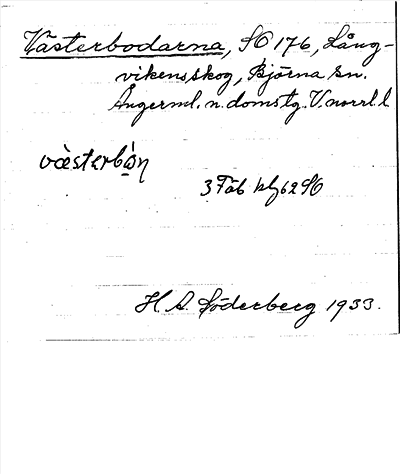 Västerbodarna, SO 176, Lång-
vikens skog, Björna sn.
Ångerml. n. domstg. V.norrl. l
væ̀sterbò̱n
3 Fäb kbl 62 SO
H. A. Söderberg 1933.